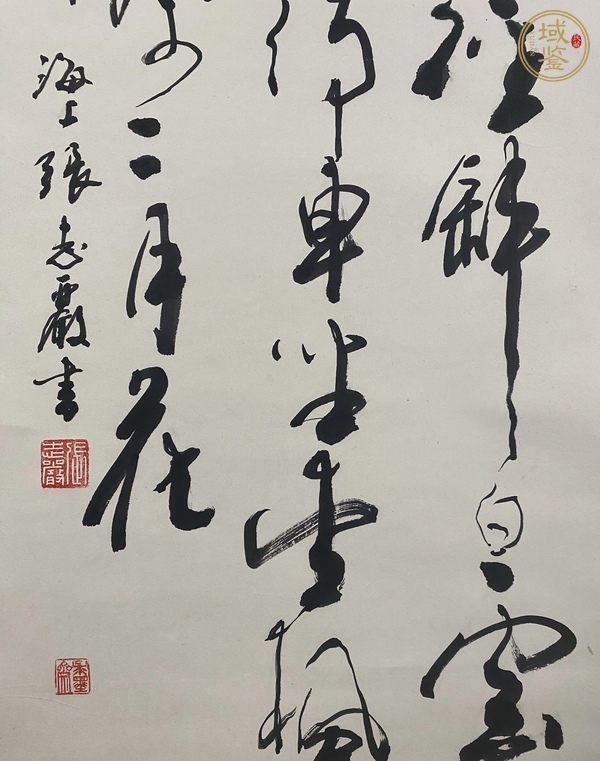 徑斜白雲
停車坐愛楓
於二月花
海上張志嚴書
張志嚴
域鉴